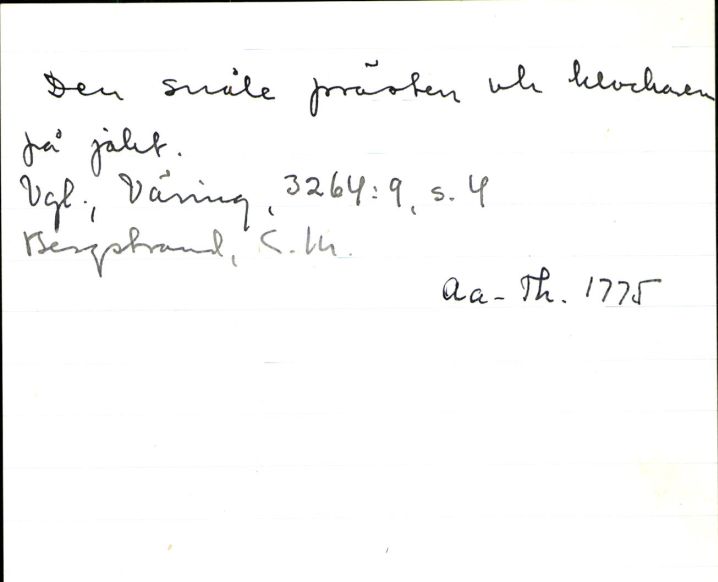 Den snåle prästen och klockaren
på jakt.
Vgl., Väring, 3264:9, s. 4
Bergstrand, C.M.
Aa-Th. 1775